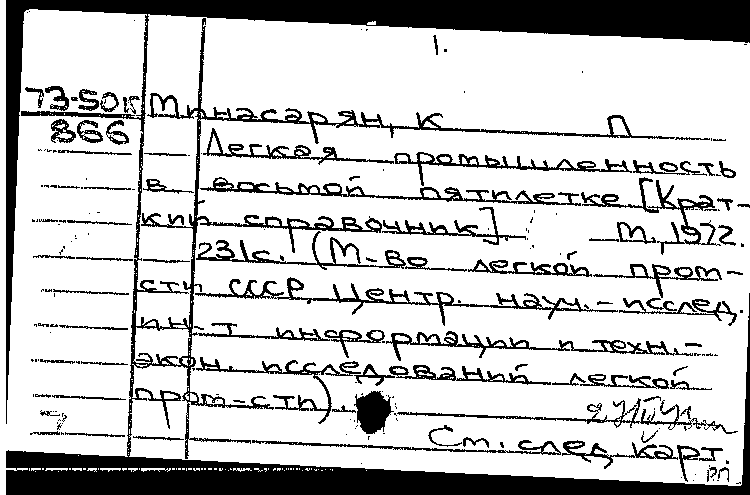 1.
73-50к Минасарян, К П
866
Легкая промышленность
в восьмой пятилетке [Крат-
кий справочник]. М., 1972.
231с. (М-во легкой пром-
сти СССР. Центр. науч.-исслед.
ин-т информации и техн.-
экон. исследований легкой
пром-сти).
См. след. карт.
РП